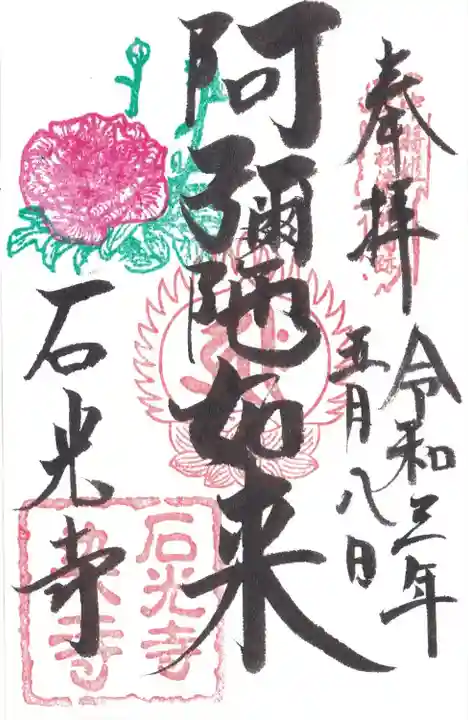 奉拝
令和三年
五月八日
阿彌陀如来
石光寺
石光寺
染寺